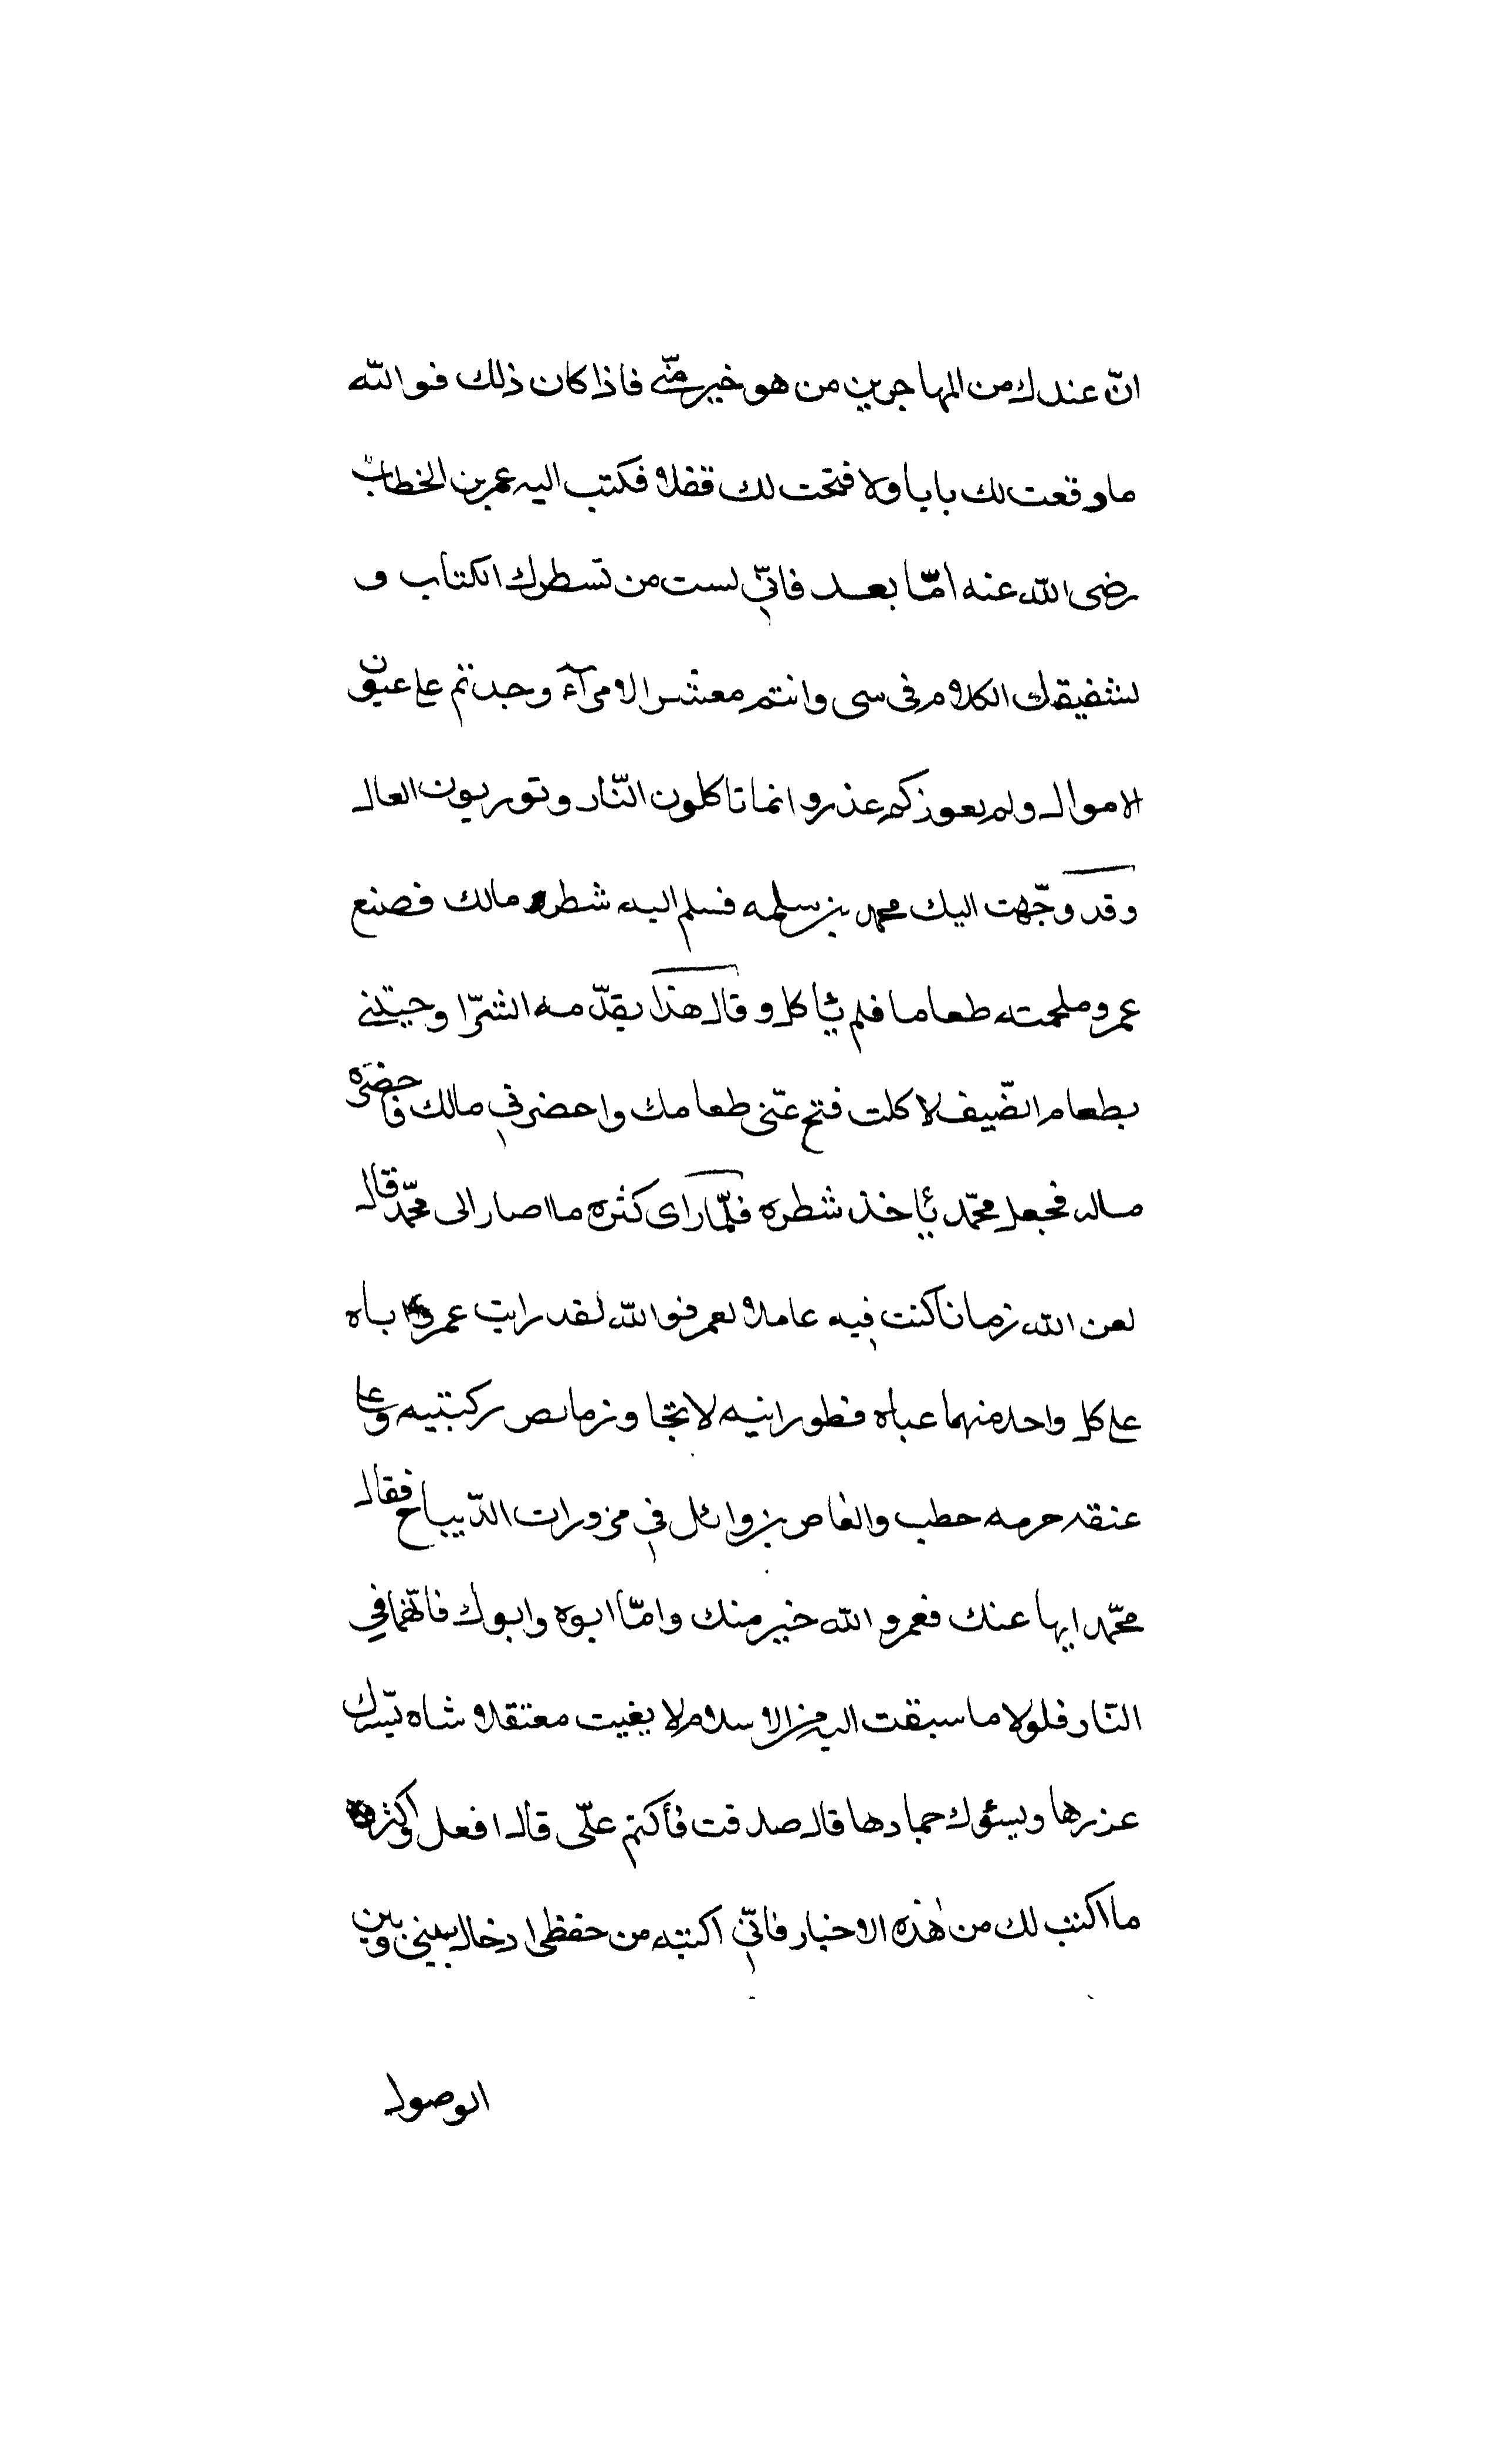 انّ عندك من المهاجرين من هو خير منّى فاذا كان ذلك فوالله
ما دقعت لك بابا ولا فتحت لك قفلا فكتب اليه عمر بن الخطاب
رضى الله عنه امّا بعد فانّى لست من تسطرك الكتاب و
لشفيقك الكلام فى سى وانتم معشر الامرآء وجدتم على عيون
الاموال ولم يعوزكم عذر وانما تاكلون النّار وتوريون العال
وقد وجّهت اليك محمد بن سلمه فسلم اليه شطر مالك فصنع
عمرو ملجمته طعاما فلم يأكل وقال هذا يقدّمه الشرّا وجيتنى
بطعام الضّيف لاكلت فنح عنّى طعامك واحضر فى مالك فاحضره
ماله فجعل محمّد يأخذ شطره فلمّا راى كثره ما اصار الى محمّد قال
لعن الله زمانا كنت فيه عاملا لعمر فوالله لقد رايت عمر وباه
على كل واحد منهما عباه فطورانيه لا تجاوز مابض ركبتيه وعلى
عنقه حرمه حطب والعاص بن وائل فى مزورات الدّيباح فقال
محمّد ايها عنك فعمر والله خير منك وامّا ابوه وابوك فانّهما فى
النّار فلولا ما سبقت اليه من الاسلام لا يغيت معتقلا شاه يسّرك
عزرها ويسئوك حمادها قال صدقت فأكتم علّى قال افعل واكثر
ما اكتب لك من هذه الاخبار فانّى اكتبه من حفظى اذ حال بينى وبين
الوصول